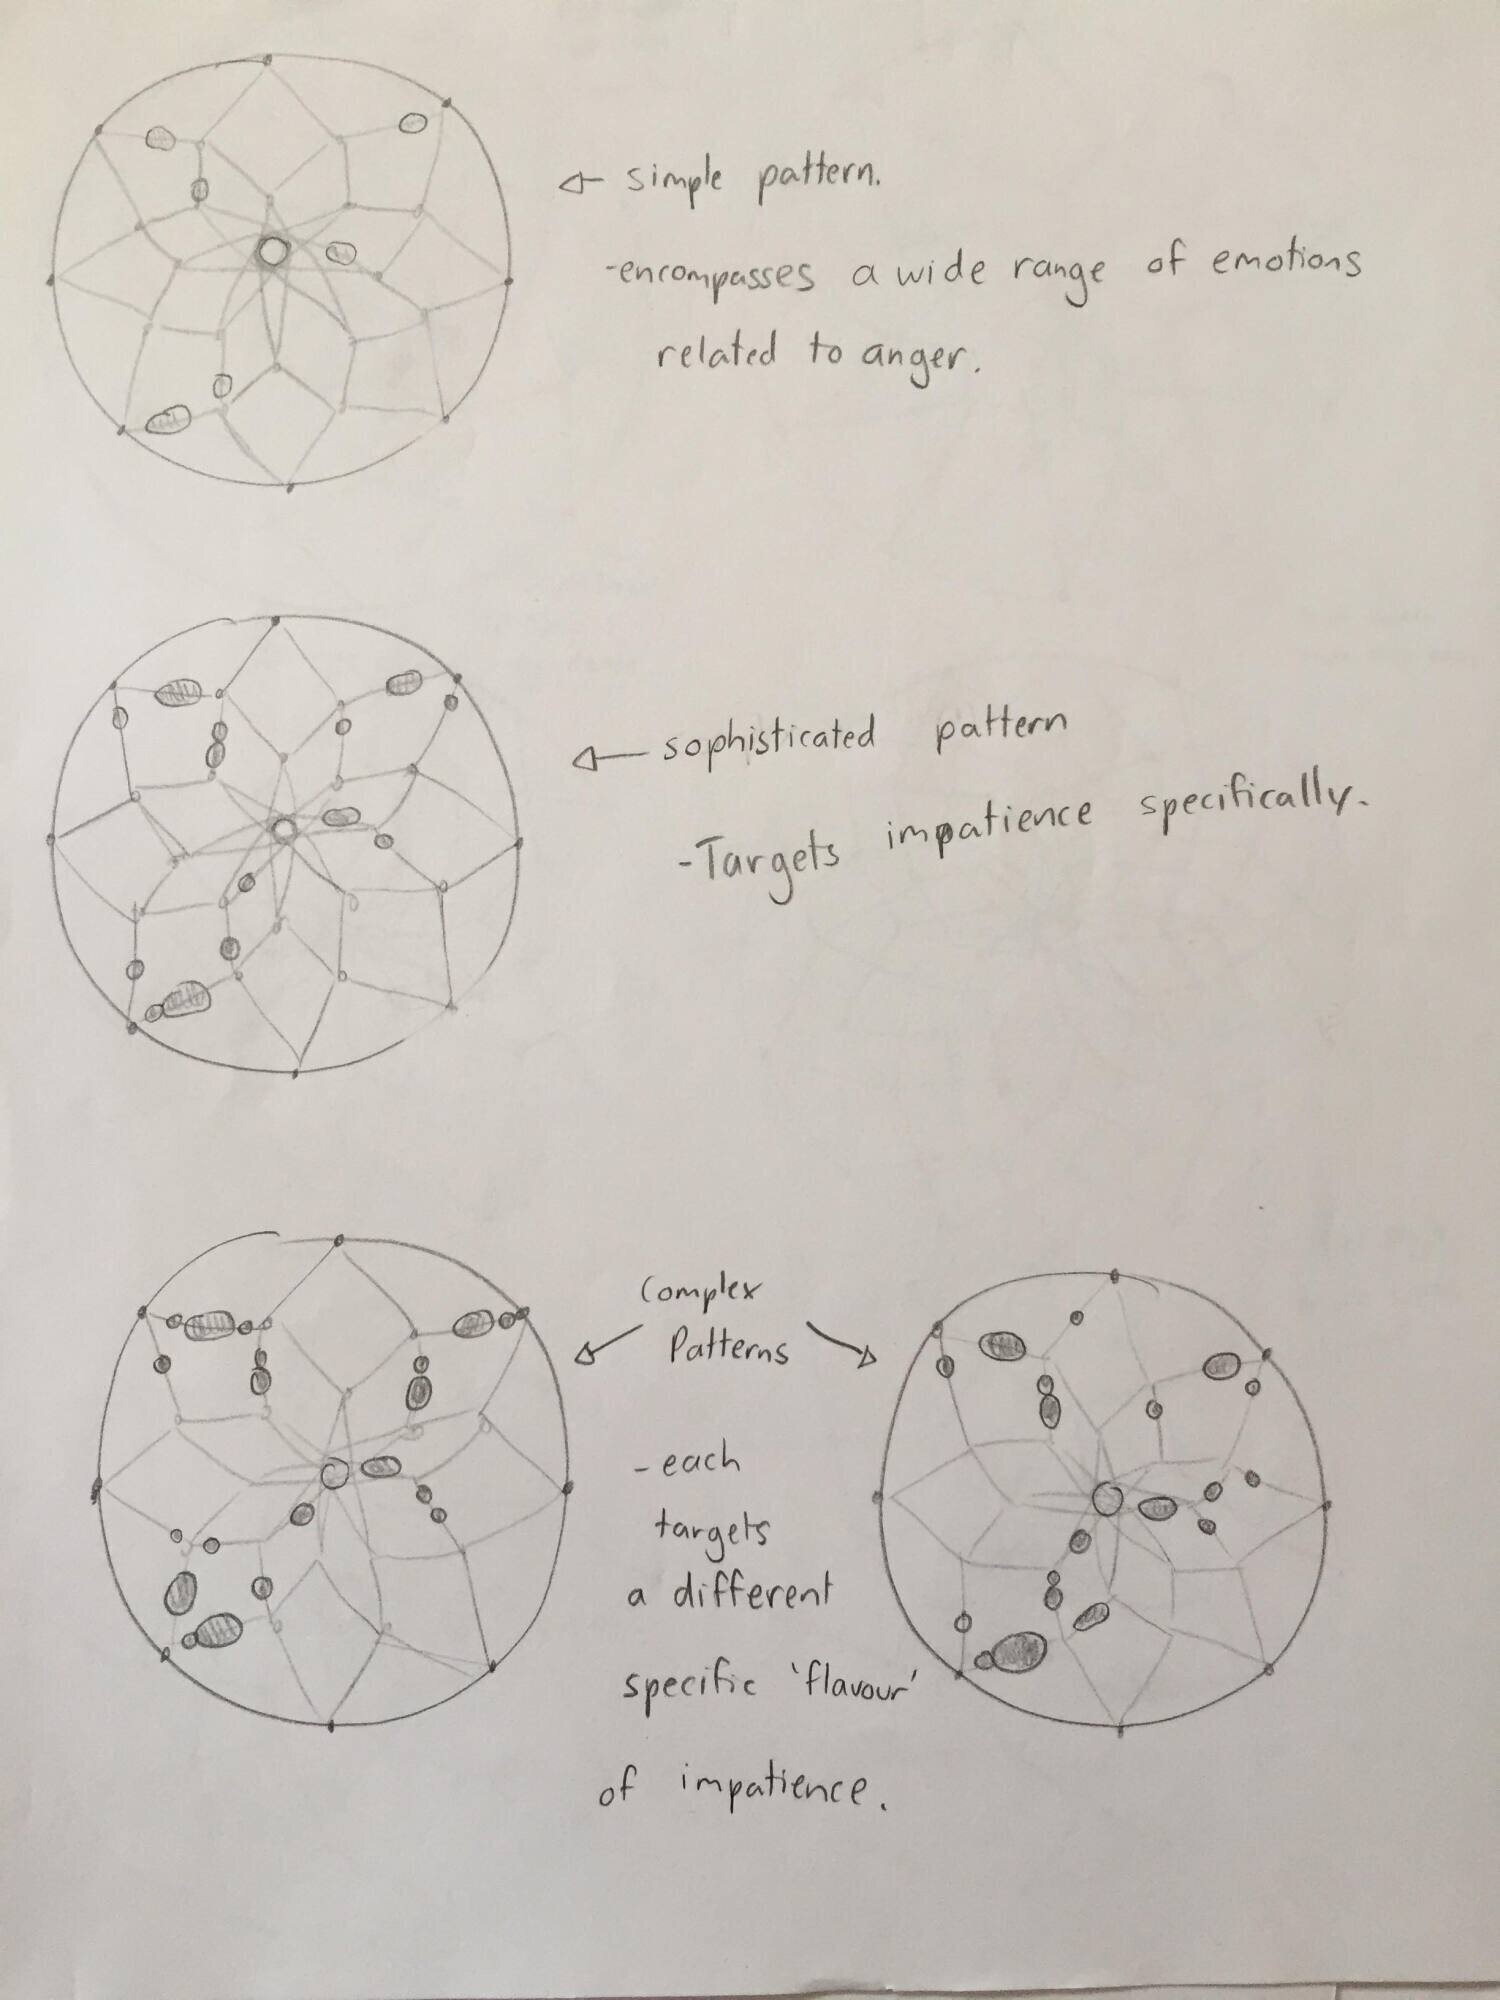 simple pattern.
-encompasses a wide range of emotions
related to anger.
sophisticated pattern
-Targets impatience specifically.
Complex
Patterns
-each
targets
a different
specific 'flavour'
of impatience.